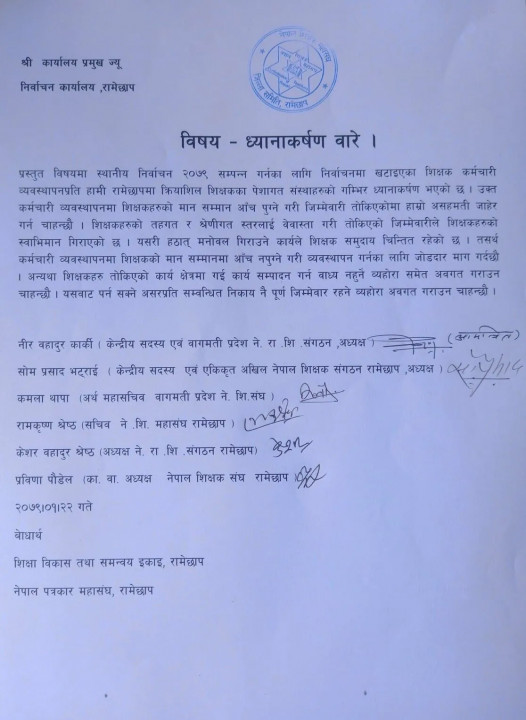 श्री कार्यालय प्रमुख ज्यू
निर्वाचन कार्यालय ,रामेछाप
जिल्ला समिति, रामेछाप
विषय - ध्यानाकर्षण वारे ।
प्रस्तुत विषयमा स्थानीय निर्वाचन २०७९ सम्पन्न गर्नका लागि निर्वाचनमा खटाइएका शिक्षक कर्मचारी
व्यवस्थापनप्रति हामी रामेछापमा क्रियाशिल शिक्षकका पेशागत संस्थाहरुको गम्भिर ध्यानाकर्षण भएको छ । उक्त
कर्मचारी व्यवस्थापनमा शिक्षकहरुको मान सम्मान आँच पुग्ने गरी जिम्मेवारी तोकिएकोमा हाम्रो असहमती जाहेर
गर्न चाहन्छौ । शिक्षकहरुको तहगत र श्रेणीगत स्तरलाई बेवास्ता गरी तोकिएको जिम्मेवारीले शिक्षकहरुको
स्वाभिमान गिराएको छ । यसरी हठात् मनोवल गिराउने कार्यले शिक्षक समुदाय चिन्तित रहेको छ । तसर्थ
कर्मचारी व्यवस्थापनमा शिक्षकको मान सम्मानमा आँच नपुग्ने गरी व्यवस्थापन गर्नका लागि जोडदार माग गर्दछौ
। अन्यथा शिक्षकहरु तोकिएको कार्य क्षेत्रमा गई कार्य सम्पादन गर्न वाध्य नहुने व्यहोरा समेत अवगत गराउन
चाहन्छौ । यसवाट पर्न सक्ने असरप्रति सम्वन्धित निकाय नै पूर्ण जिम्मेवार रहने व्यहोरा अवगत गराउन चाहन्छौ ।
नीर वहादुर कार्की ( केन्द्रीय सदस्य एवं वागमती प्रदेश ने. रा .शि .संगठन ,अध्यक्ष )
सोम प्रसाद भट्राई ( केन्द्रीय सदस्य एवं एकिकृत अखिल नेपाल शिक्षक संगठन रामेछाप ,अध्यक्ष )
कमला थापा (अर्थ महासचिव वागमती प्रदेश ने. शि.संघ )
रामकृष्ण श्रेष्ठ (सचिव ने .शि. महासंघ रामेछाप )
केशर वहादुर श्रेष्ठ (अध्यक्ष ने. रा .शि .संगठन रामेछाप)
प्रविणा पौडेल (का. वा. अध्यक्ष नेपाल शिक्षक संघ रामेछाप )
२०७९।०१।२२ गते
बोधार्थ
शिक्षा विकास तथा समन्वय इकाइ, रामेछाप
नेपाल पत्रकार महासंघ, रामेछाप